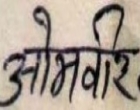 ओमवीर